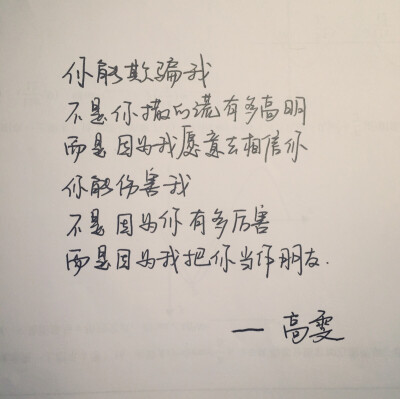 你能欺骗我
不是你撒的谎有多高明
而是因为我愿意去相信你
你能伤害我
不是因为你有多厉害
而是因为我把你当作朋友.
— 高雯